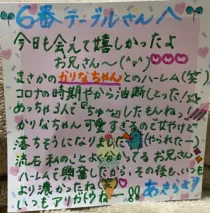 6番テーブルさんへ
今日も会えて嬉しかったよ
お兄さん〜(^v^)♡♡♡
まさかのかりなちゃんとのハーレム(笑)
コロナの時期やから油断しとった!☆
めっちゃ3人で「ちゅ〜」したもんねっ
かりなちゃん可愛すぎるので女やけど
落ちそうになりました(やられたー)
流石私のことよく分かってるお兄さん
ハーレムで興奮したから、その後も、いつも
より濃かったね(笑)
いつもアリがとうねー